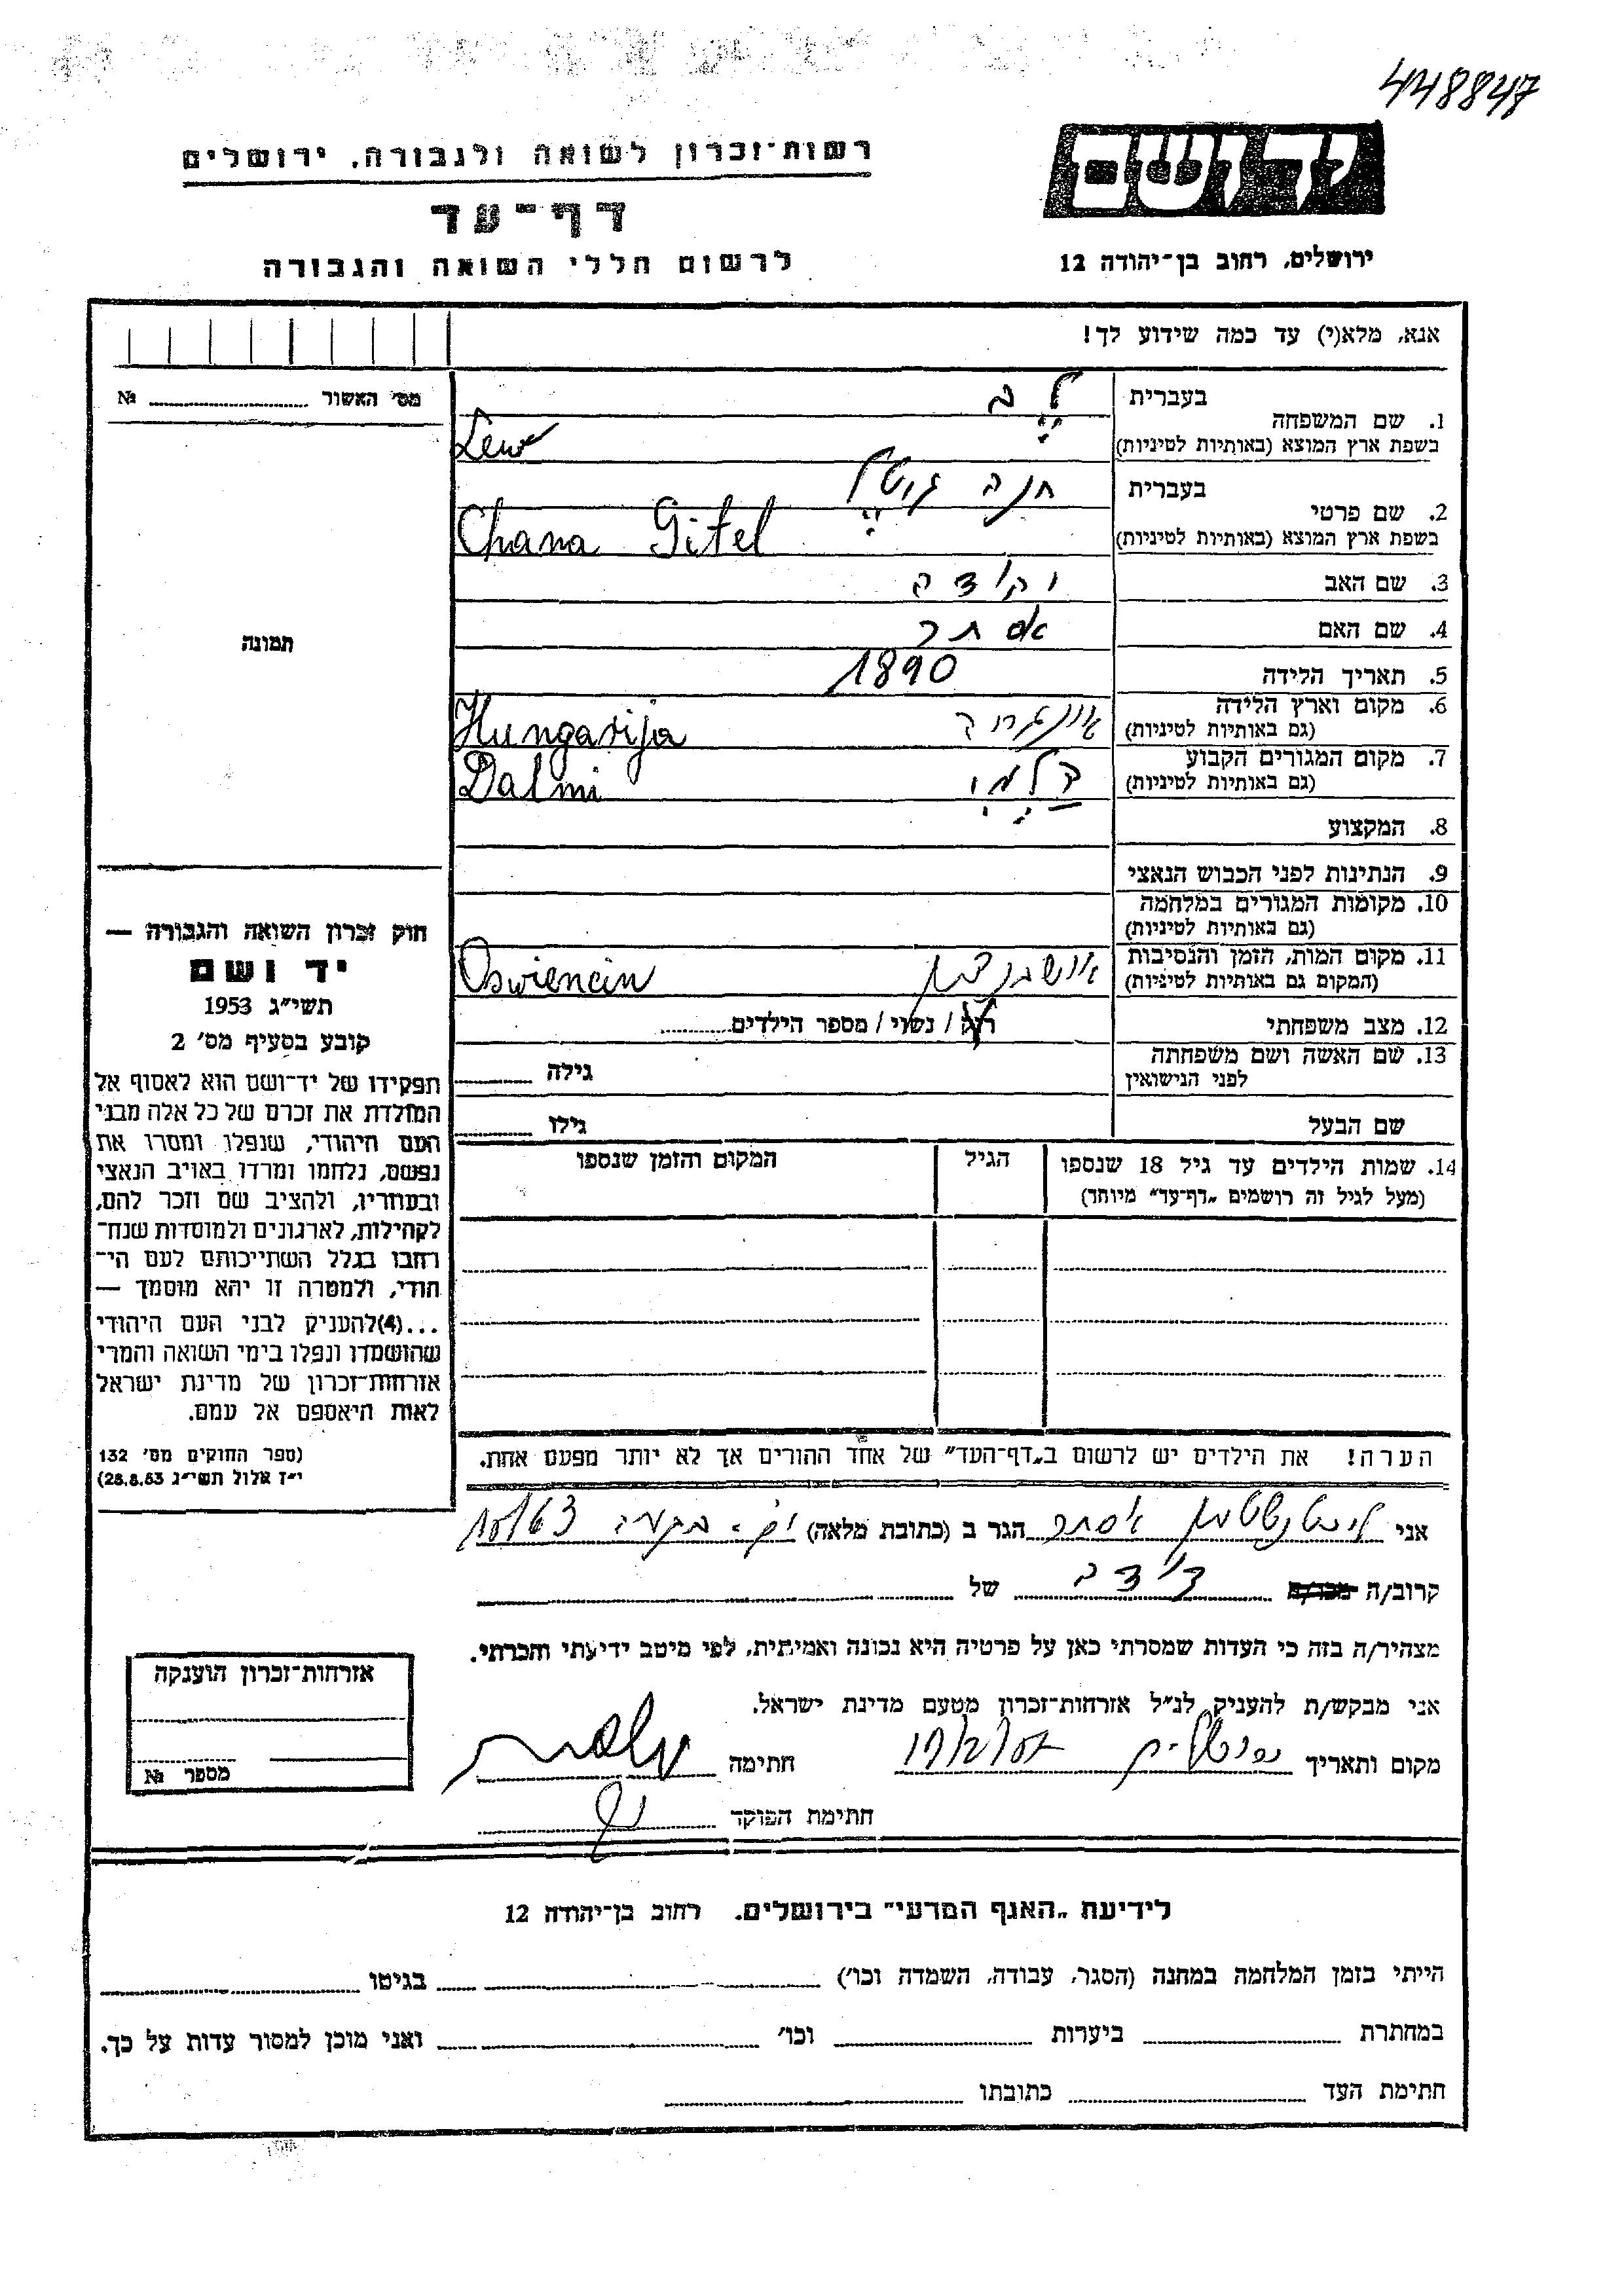 448847
יד ושם
רשות-זכרון לשואה ולגבורה, ירושלים
דף-עד
לרשום חללי השואה והגבורה
ירושלים, רחוב בן-יהודה 12
אנא, מלא(י) עד כמה שידוע לך!
מס׳ האשור № 
תמונה
חוק זכרון השואה והגבורה —
יד ושם
תשי״ג 1953
קובע בסעיף מס׳ 2
תפקידו של יד-ושם הוא לאסוף אל
המולדת את זכרם של כל אלה מבני
העם היהודי, שנפלו ומסרו את
נפשם, נלחמו ומרדו באויב הנאצי
ובעוזריו, ולהציב שם וזכר להם,
לקהילות, לארגונים ולמוסדות שנח-
רבו בגלל השתייכותם לעם הי-
הודי, ולמטרה זו יהא מוסמך —
...(4)להעניק לבני העם היהודי
שהושמדו ונפלו בימי השואה והמרי
אזרחות-זכרון של מדינת ישראל
לאות היאספם אל עמם.
(ספר החוקים מס׳ 132
י״ז אלול תשי״ג 28.8.53)
1. שם המשפחה
בעברית לב
בשפת ארץ המוצא (באותיות לטיניות) Lew
2. שם פרטי
בעברית חנה גיטל
בשפת ארץ המוצא (באותיות לטיניות) Chana Gitel
3. שם האב
4. שם האם אסתר
5. תאריך הלידה 1890
6. מקום וארץ הלידה
(גם באותיות לטיניות) Hungarija
7. מקום המגורים הקבוע
(גם באותיות לטיניות) דלמי Dalmi
8. המקצוע
9. הנתינות לפני הכבוש הנאצי
10. מקומות המגורים במלחמה
(גם באותיות לטיניות)
11. מקום המות, הזמן והנסיבות
(המקום גם באותיות לטיניות) Oswiencin
12. מצב משפחתי רוק / נשוי / מספר הילדים
13. שם האשה ושם משפחתה
לפני הנישואין גילה
שם הבעל גילו
14. שמות הילדים עד גיל 18 שנספו הגיל המקום והזמן שנספו
(מעל לגיל זה רושמים „דף-עד״ מיוחד)
הערה! את הילדים יש לרשום ב„דף-העד״ של אחד ההורים אך לא יותר מפעם אחת.
אני אסתר הגר ב (כתובת מלאה)
קרוב/ה מכר/ה דודה של
מצהיר/ה בזה כי העדות שמסרתי כאן על פרטיה היא נכונה ואמיתית, לפי מיטב ידיעתי והכרתי.
אני מבקש/ת להעניק לנ״ל אזרחות-זכרון מטעם מדינת ישראל.
מקום ותאריך ירושלים חתימה
חתימת הפוקד
אזרחות-זכרון הוענקה
מספר №
לידיעת „האגף המדעי״ בירושלים. רחוב בן-יהודה 12
הייתי בזמן המלחמה במחנה (הסגר, עבודה, השמדה וכו׳) בגיטו
במחתרת ביערות וכו׳ ואני מוכן למסור עדות על כך.
חתימת העד כתובתו